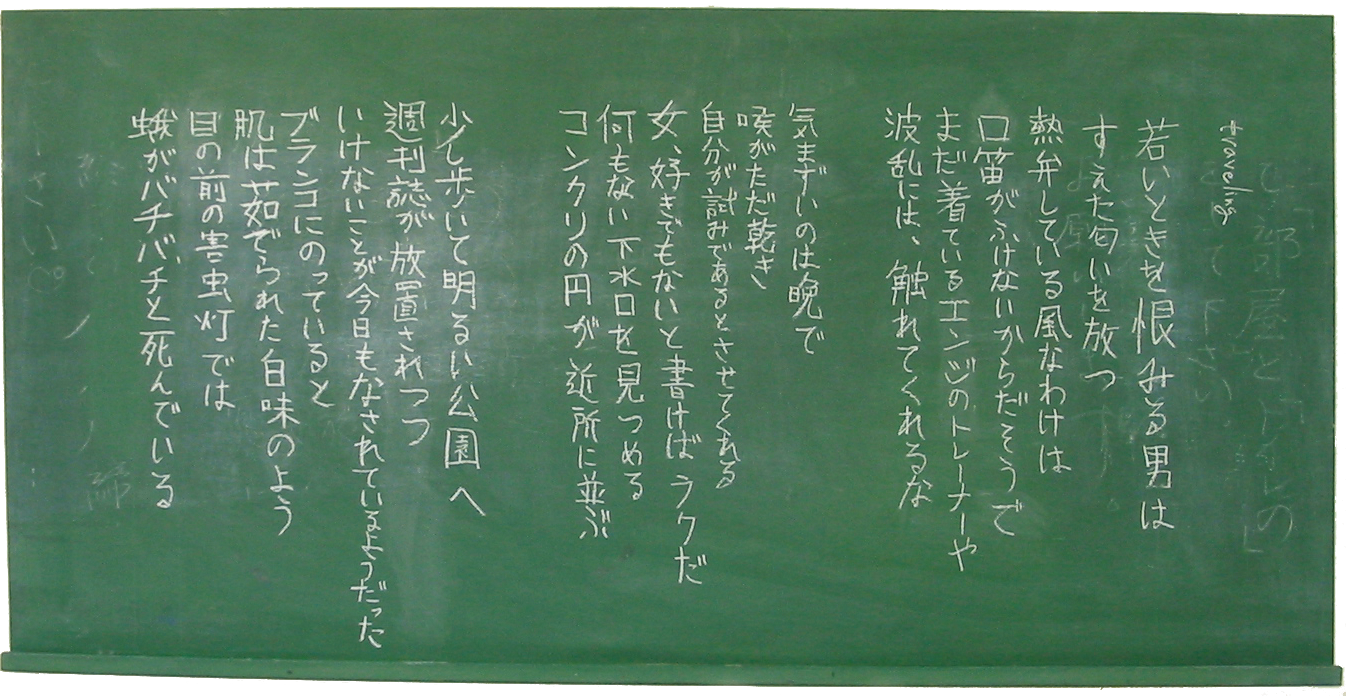 traveling
若いときを恨みる男は
すえた匂いを放つ
熱弁している風なわけは
口笛がふけないからだそうで
まだ着ているエンジのトレーナーや
波乱には、触れてくれるな
気まずいのは晩で
喉がただ乾き
自分が試みであるとさせてくれる
女、好きでもないと書けばラクだ
何もない下水口を見つめる
コンクリの円が近所に並ぶ
少し歩いて明るい公園へ
週刊誌が放置されつつ
いけないことが今日もなされているようだった
ブランコにのっていると
肌は茹でられた白味のよう
目の前の害虫灯では
蛾がバチバチと死んでいる